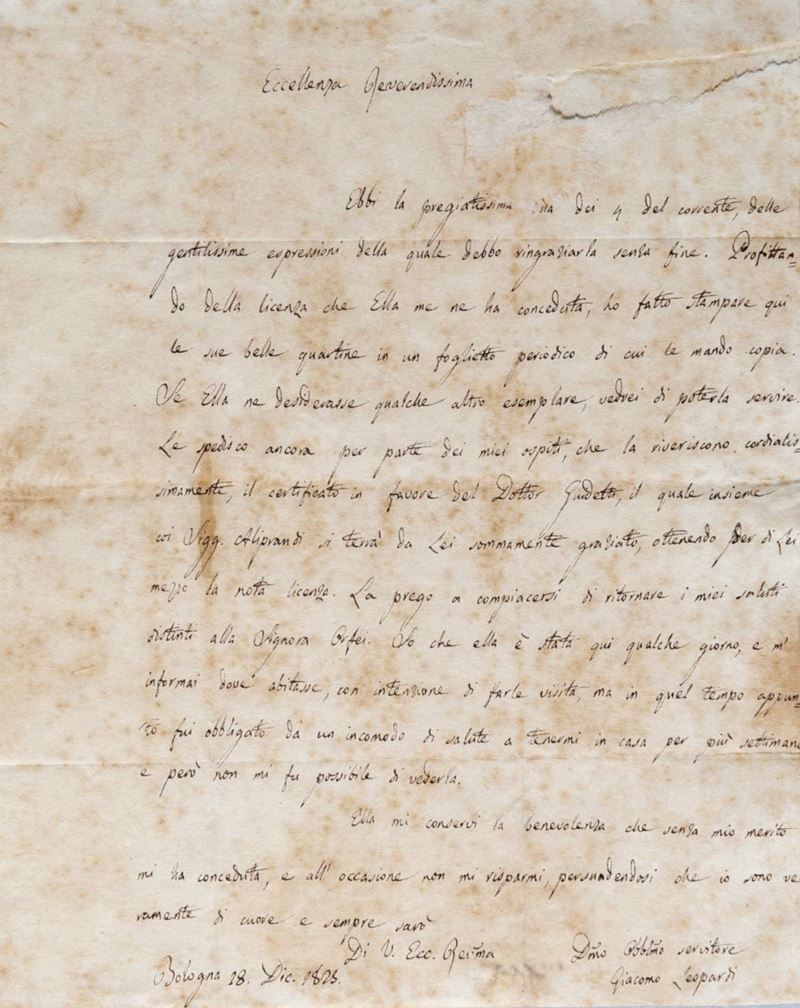 Eccellenza Reverendissima
Ebbi la pregiatissima sua dei 9 del corrente, delle
gentilissime espressioni della quale debbo ringraziarla senza fine. Profittan=
do della licenza che Ella me ne ha conceduta, ho fatto stampare qui
le sue belle quartine in un foglietto periodico di cui le mando copia.
Se Ella ne desiderasse qualche altro esemplare, vedrei di poterla servire.
Le spedisco ancora per parte dei miei ospiti, che la riveriscono cordialis=
simamente, il certificato in favore del Dottor Guidetti, il quale insieme
coi Sigg. Aliprandi si terrà da Lei sommamente graziato, ottenendo per di Lei
mezzo la nota licenza. La prego a compiacersi di ritornare i miei saluti
distinti alla Signora Orfei. So che ella è stata qui qualche giorno, e m'
informai dove abitasse, con intenzione di farle visita, ma in quel tempo appun=
to fui obbligato da un incomodo di salute a tenermi in casa per più settimane
e però non mi fu possibile di vederla.
Ella mi conservi la benevolenza che senza mio merito
mi ha conceduta, e all' occasione non mi risparmi, persuadendosi che io sono ve
ramente di cuore e sempre sarò
Di V. Ecc. Rev̄ma
Dm̄o Obblm̄o servitore
Bologna 28. Dic. 1825.
Giacomo Leopardi